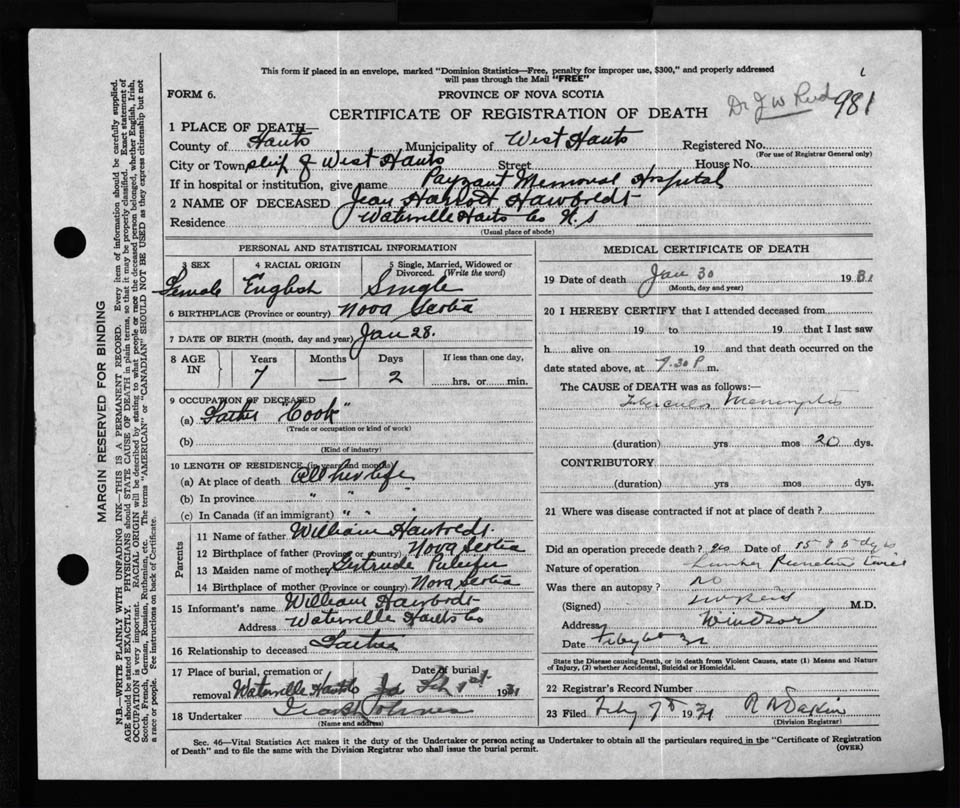 This form if placed in an envelope, marked "Dominion Statistics—Free, penalty for improper use, $300," and properly addressed
will pass through the Mail "FREE"
FORM 6.
PROVINCE OF NOVA SCOTIA
CERTIFICATE OF REGISTRATION OF DEATH
Dr J W Reid 981
1 PLACE OF DEATH—
County of Hants Municipality of West Hants Registered No.
(For use of Registrar General only)
City or Town of West Hants Street House No.
If in hospital or institution, give name Payzant Memorial Hospital
2 NAME OF DECEASED Jean
Residence Waterville Hants Co N.S
(Usual place of abode)
PERSONAL AND STATISTICAL INFORMATION
3 SEX 4 RACIAL ORIGIN 5 Single, Married, Widowed or
Divorced. (Write the word)
Female English Single
6 BIRTHPLACE (Province or country) Nova Scotia
7 DATE OF BIRTH (month, day and year) Jan 28.
8 AGE IN Years Months Days If less than one day,
7 — 2 hrs. or min.
9 OCCUPATION OF DECEASED
(a) Father "Cook"
(Trade or occupation or kind of work)
(b)
(Kind of industry)
10 LENGTH OF RESIDENCE (in years and months)
(a) At place of death All her life
(b) In province " " "
(c) In Canada (if an immigrant) " " "
Parents
11 Name of father William
12 Birthplace of father (Province or country) Nova Scotia
13 Maiden name of mother Gertrude
14 Birthplace of mother (Province or country) Nova Scotia
15 Informant's name William
Address Waterville Hants Co
16 Relationship to deceased Father
17 Place of burial, cremation or Date of burial
removal Waterville Hants Co Feb 1st 1931
18 Undertaker
(Name and address)
MEDICAL CERTIFICATE OF DEATH
19 Date of death Jan 30 1931
(Month, day and year)
20 I HEREBY CERTIFY that I attended deceased from
19 to 19 that I last saw
h alive on 19 and that death occurred on the
date stated above, at 7.30 P m.
The CAUSE of DEATH was as follows:—
Tubercular Meningitis
(duration) yrs mos 20 dys.
CONTRIBUTORY
(duration) yrs mos dys.
21 Where was disease contracted if not at place of death?
Did an operation precede death? yes Date of
Nature of operation Lumbar Puncture
Was there an autopsy? no
(Signed) J W Reid M.D.
Address Windsor
Date
State the Disease causing Death, or in death from Violent Causes, state (1) Means and Nature
of Injury, (2) whether Accidental, Suicidal or Homicidal.
22 Registrar's Record Number
23 Filed Feby 7th 1931
(Division Registrar)
Sec. 46—Vital Statistics Act makes it the duty of the Undertaker or person acting as Undertaker to obtain all the particulars required in the "Certificate of Registration
of Death" and to file the same with the Division Registrar who shall issue the burial permit.
(OVER)
MARGIN RESERVED FOR BINDING
N.B.—WRITE PLAINLY WITH UNFADING INK—THIS IS A PERMANENT RECORD. Every item of information should be carefully supplied.
AGE should be stated EXACTLY. PHYSICIANS should STATE CAUSE OF DEATH in plain terms, so that it may be properly classified. Exact statement of
OCCUPATION is very important. RACIAL ORIGIN will be described by stating to what people or race the deceased person belonged, whether English, Irish,
Scotch, French, German, Russian, Ruthenian, etc. The terms "AMERICAN" or "CANADIAN" SHOULD NOT BE USED as they express citizenship but not
a race or people. See instructions on back of Certificate.